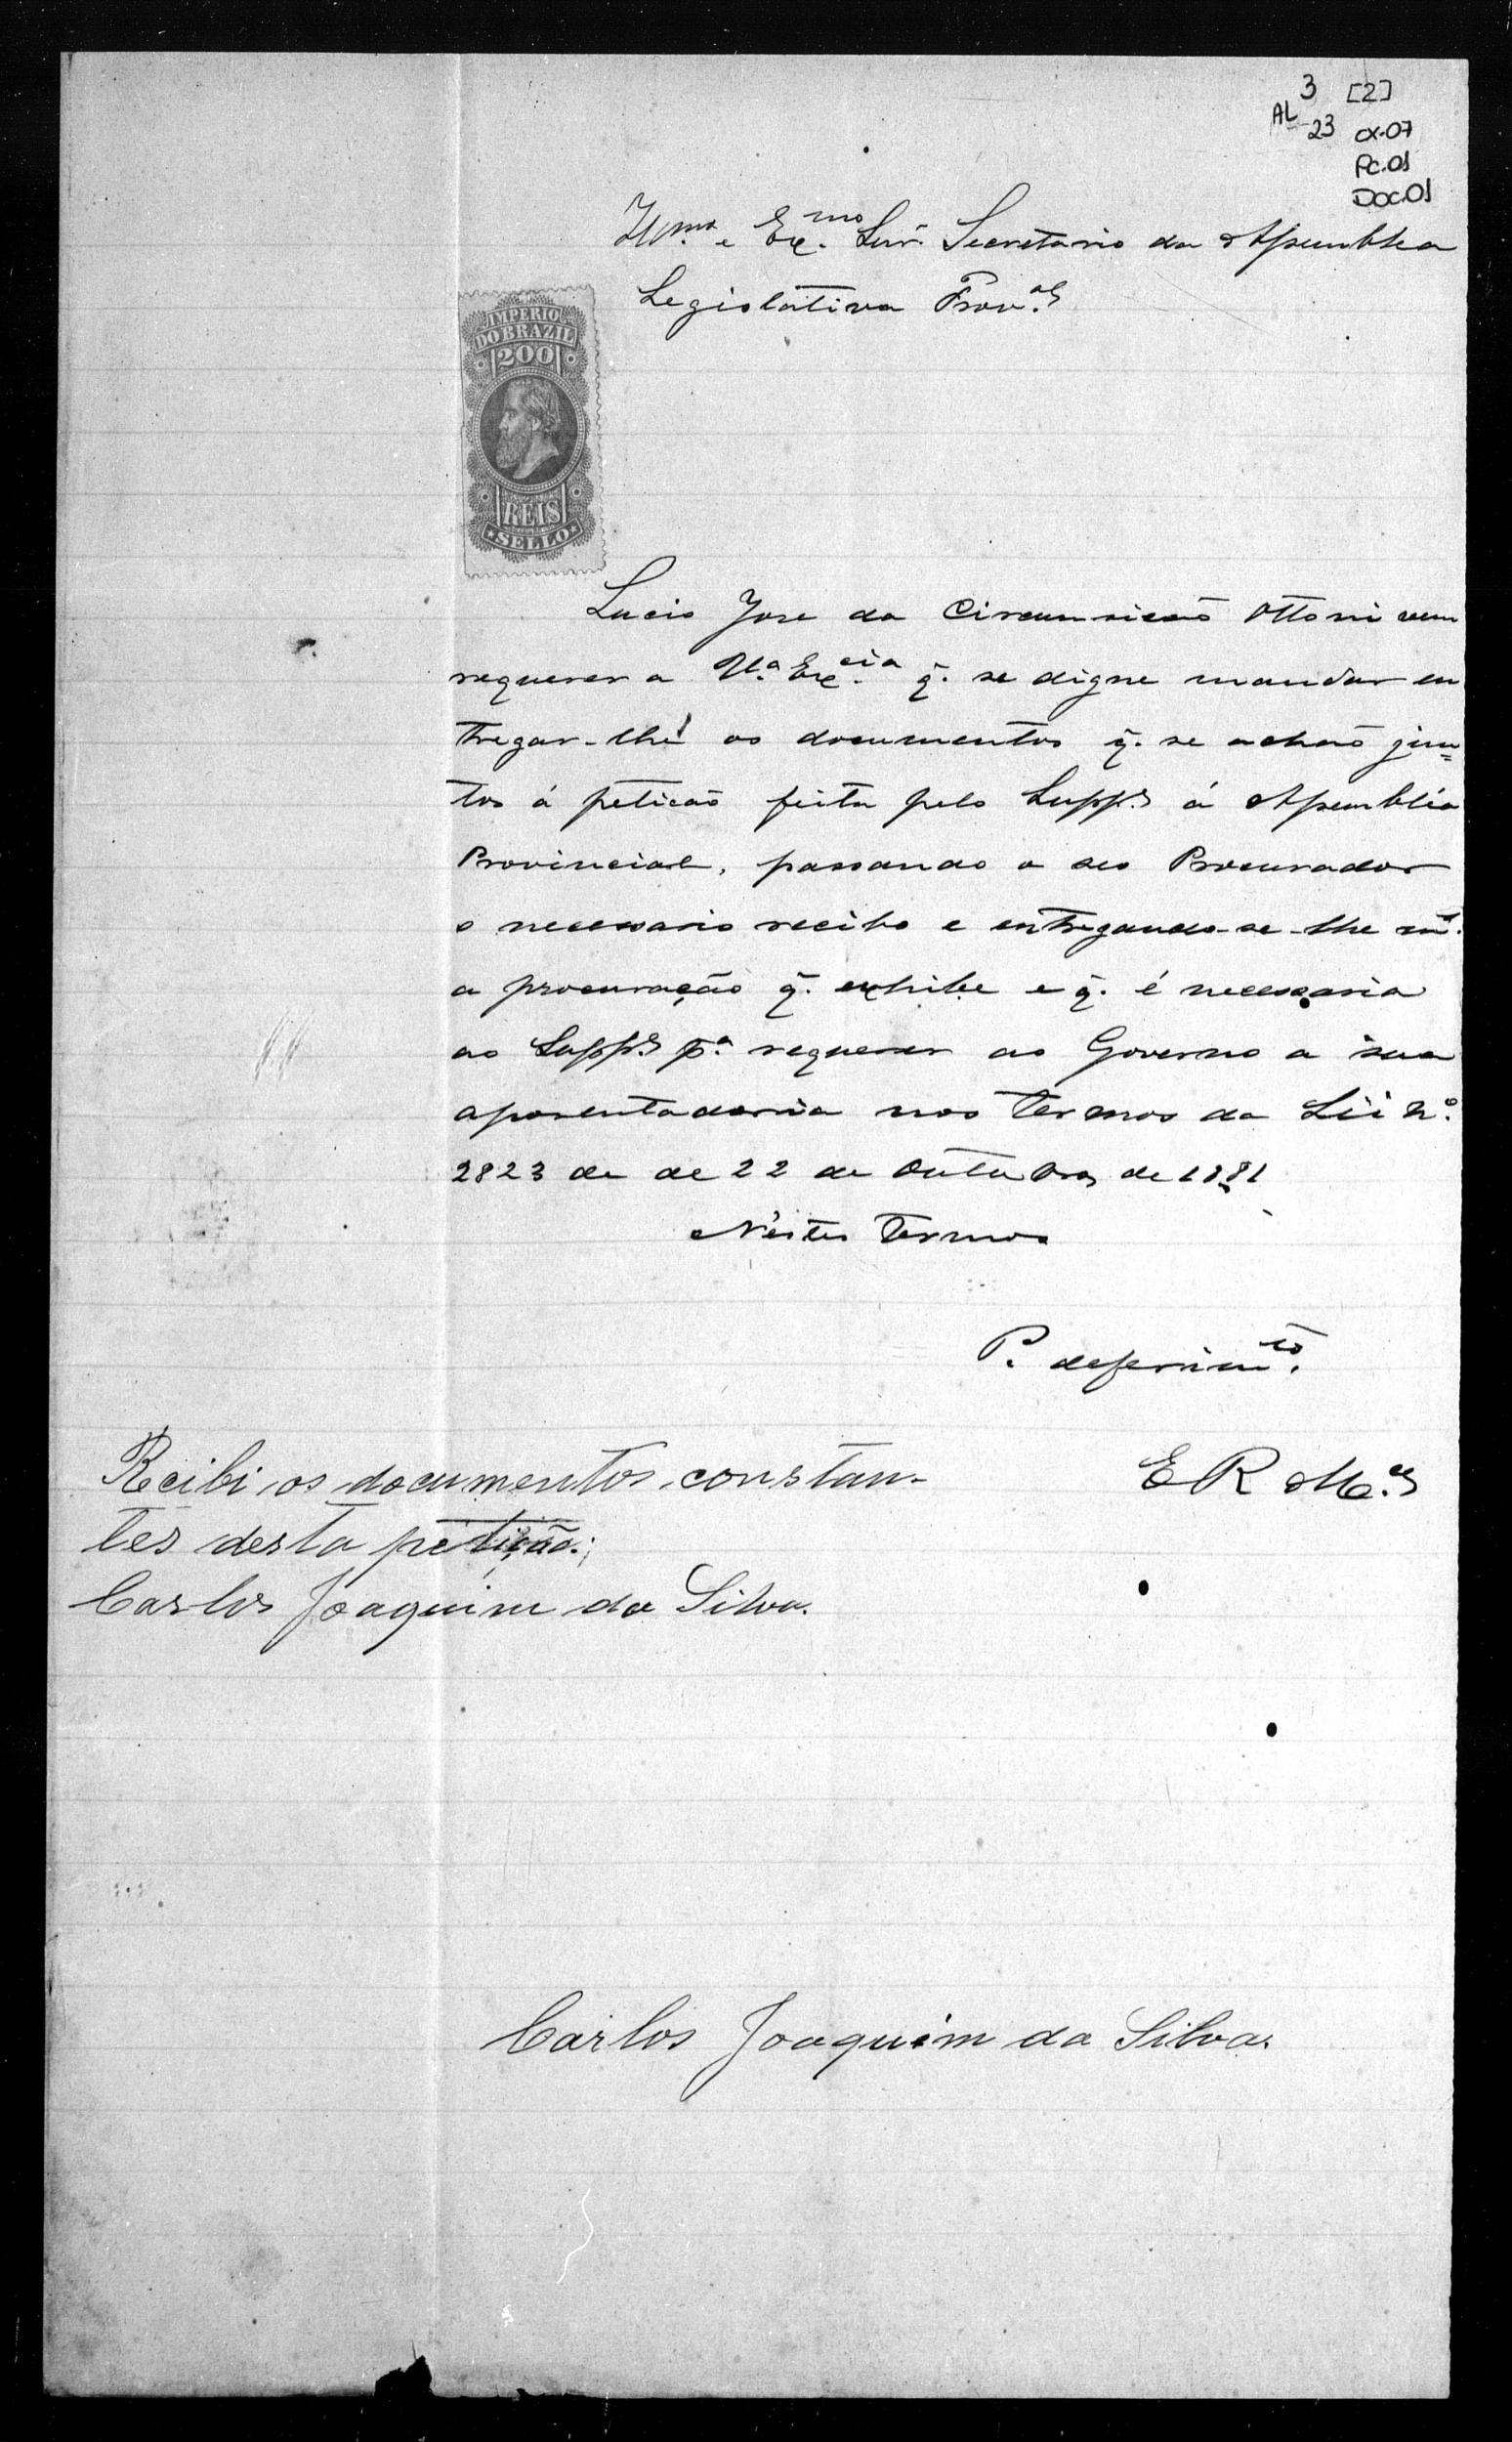 3 [2]
AL 23 CX.07
PC.01
DOC.01
Illmo. e Exmo. Snr. Secretario da Assemblea
Legislativa Proval.
IMPERIO
DO BRAZIL
200
REIS
SELLO
Lucio Jose da Circumsicaõ Ottoni vem
requerer a Va. Excia. q̃. se digne mandar en
tregar-lhe os documentos q̃. se achaõ jun=
tos á peticaõ feita pelo Suppe. á Assembléa
Provincial, passando o seo Procurador
o necessario recibo e entregando-se-lhe
a procuração q̃. exhibe e q̃. é necessaria
ao Suppe. pa. requerer ao Governo a sua
aposentadoria nos termos da Lei No.
2823 de de 22 de Outubro de 1881
N'estes termos
P. deferimto.
E R Mce.
Recibi os documentos constan-
tes desta petição.
Carlos Joaquim da Silva.
Carlos Joaquim da Silva.